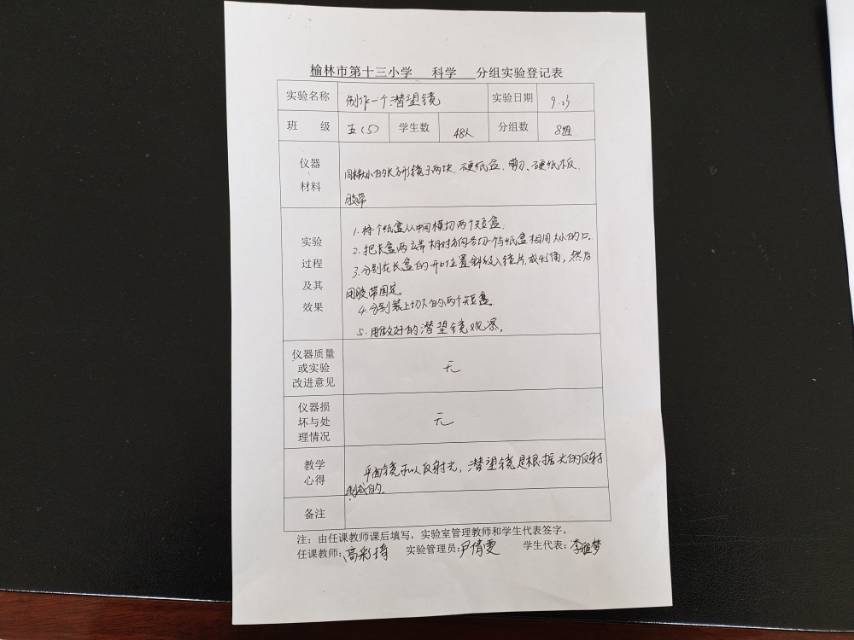 榆林市第十三小学 科学 分组实验登记表
实验名称 制作一个潜望镜 实验日期 9.23
班 级 五(5) 学生数 48人 分组数 8组
仪器
材料
同样大小的长方形镜子两块、硬纸盒、剪刀、硬纸板、
胶带
实验
过程
及其
效果
1.将个纸盒从中间横切两个短盒.
2.把长盒两端相对方向各切一个与纸盒相同大小的口.
3.分别在长盒的开口位置斜放入镜片,成45°角,然后
用胶带固定.
4.分别装上切下的两个短盒.
5.用做好的潜望镜观察。
仪器质量
或实验
改进意见
无
仪器损
坏与处
理情况
无
教学
心得
平面镜可以反射光,潜望镜是根据光的反射
制成的.
备注
注:由任课教师课后填写,实验室管理教师和学生代表签字。
任课教师: 高彩琦 实验管理员: 尹倩雯 学生代表: 李梦